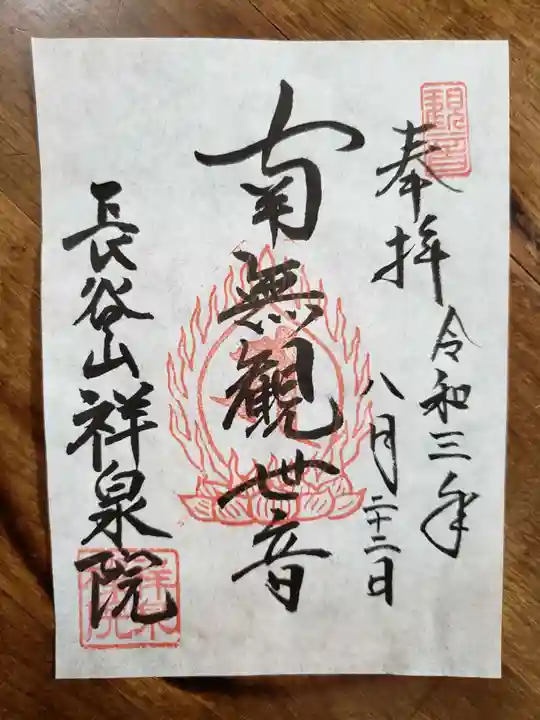 観音
奉拝
令和三年
八月二十二日
南無観世音
長谷山祥泉院
祥泉院